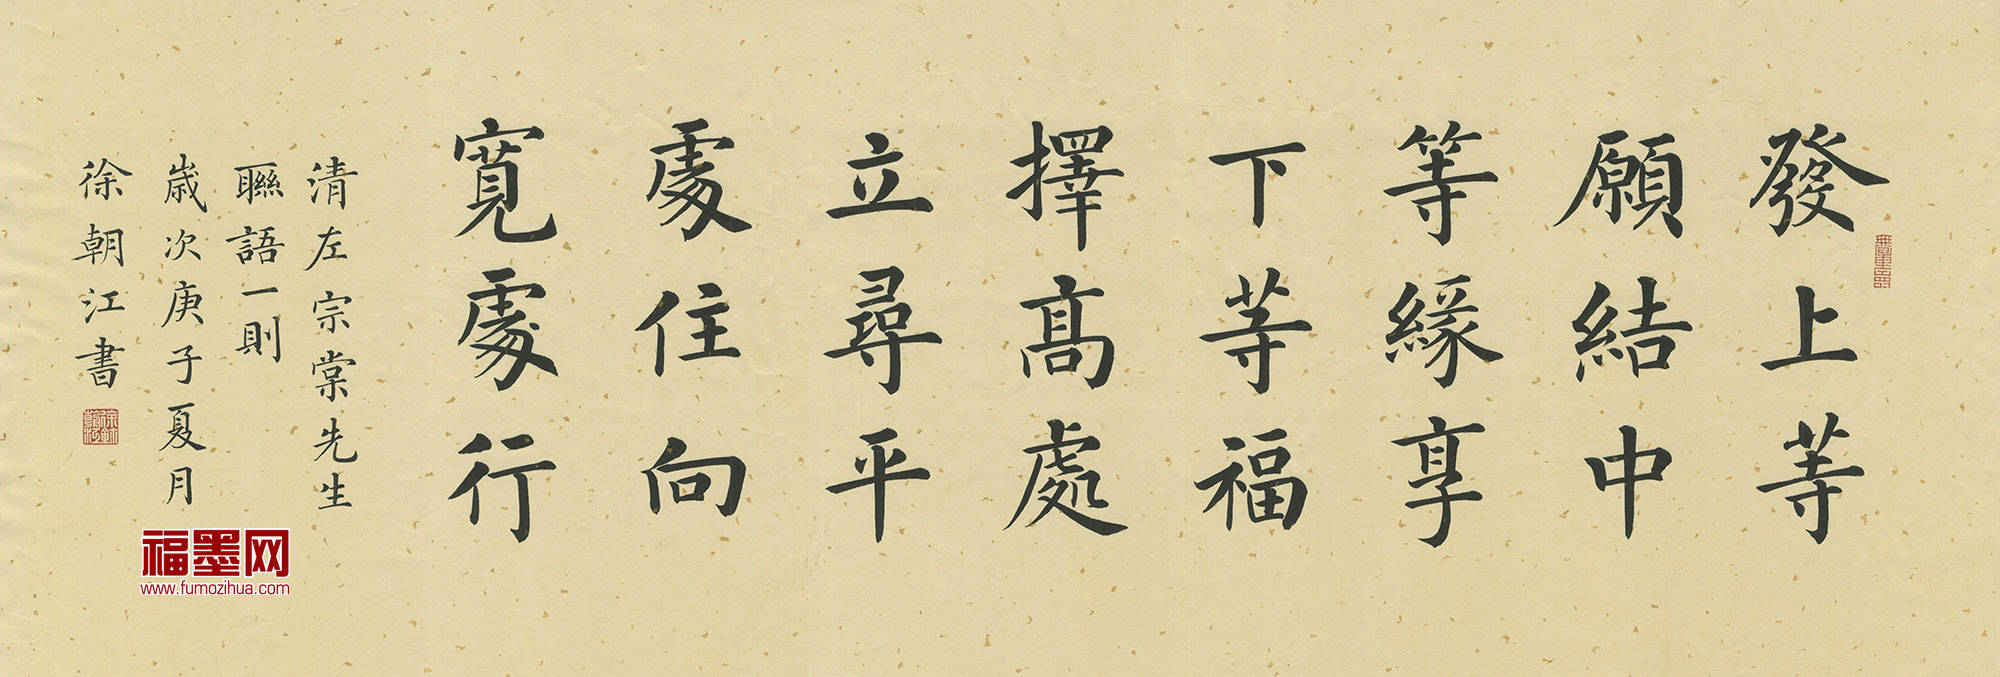 發上等
願結中
等緣享
下等福
擇高處
立尋平
處住向
寬處行
清左宗棠先生
聯語一則
歲次庚子夏月
徐朝江書
福墨网
www.fumozihua.com